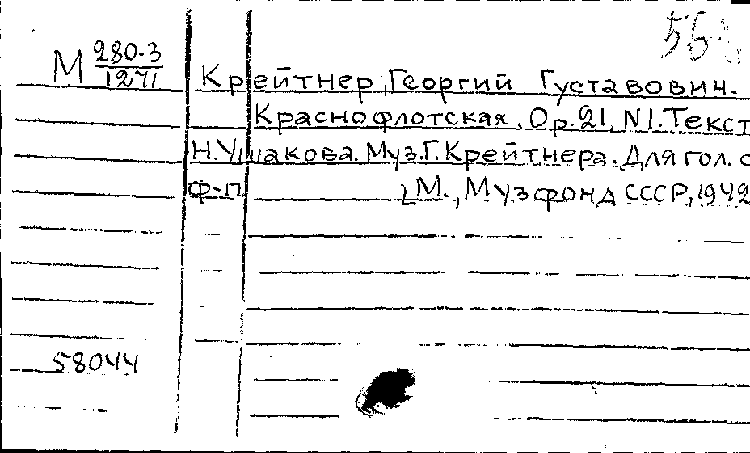 М 280-3
1271
Крейтнер, Георгий Густавович.
Краснофлотская, Op. 21, N1. Текст
Н. Ушакова. Муз. Г. Крейтнера. Для гол. с
ф-п. М., Музфонд СССР, 1942
58044